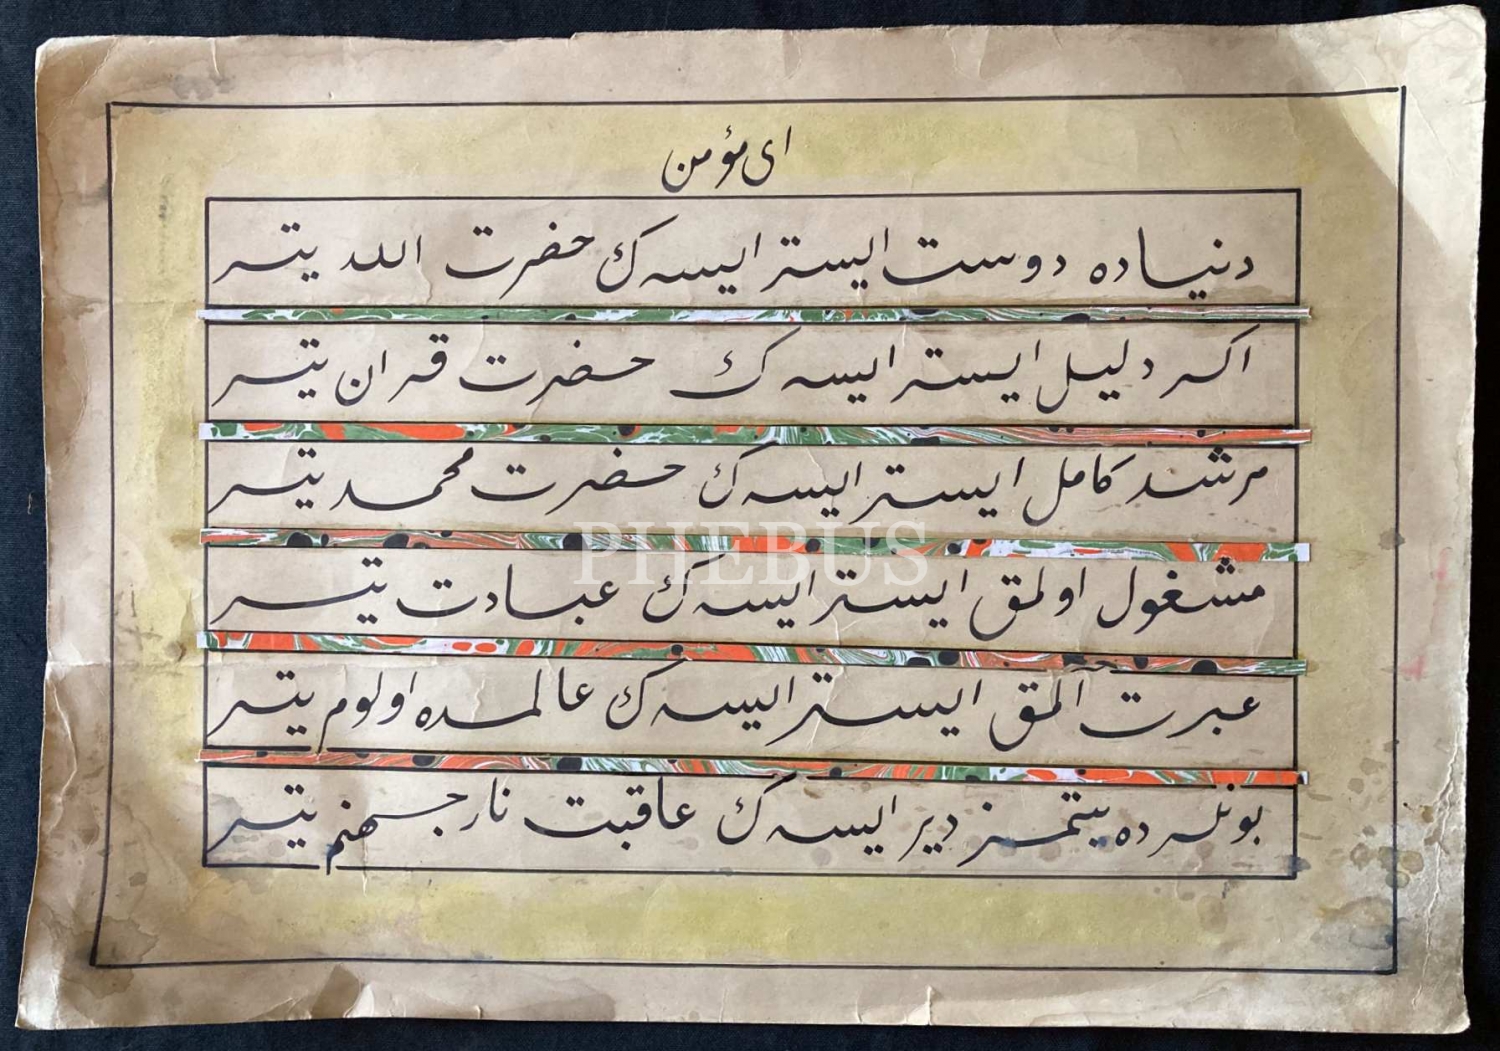 ای مؤمن
دنیاده دوست ایستر ایسه ك حضرت الله یتر
اکر دلیل ایستر ایسه ك حضرت قران یتر
مرشد کامل ایستر ایسه ك حضرت محمد یتر
PHEBUS
مشغول اولمق ایستر ایسه ك عبادت یتر
عبرت آلمق ایستر ایسه ك عالمده اولوم یتر
بونلرده یتمز دیر ایسه ك عاقبت نار جهنم یتر